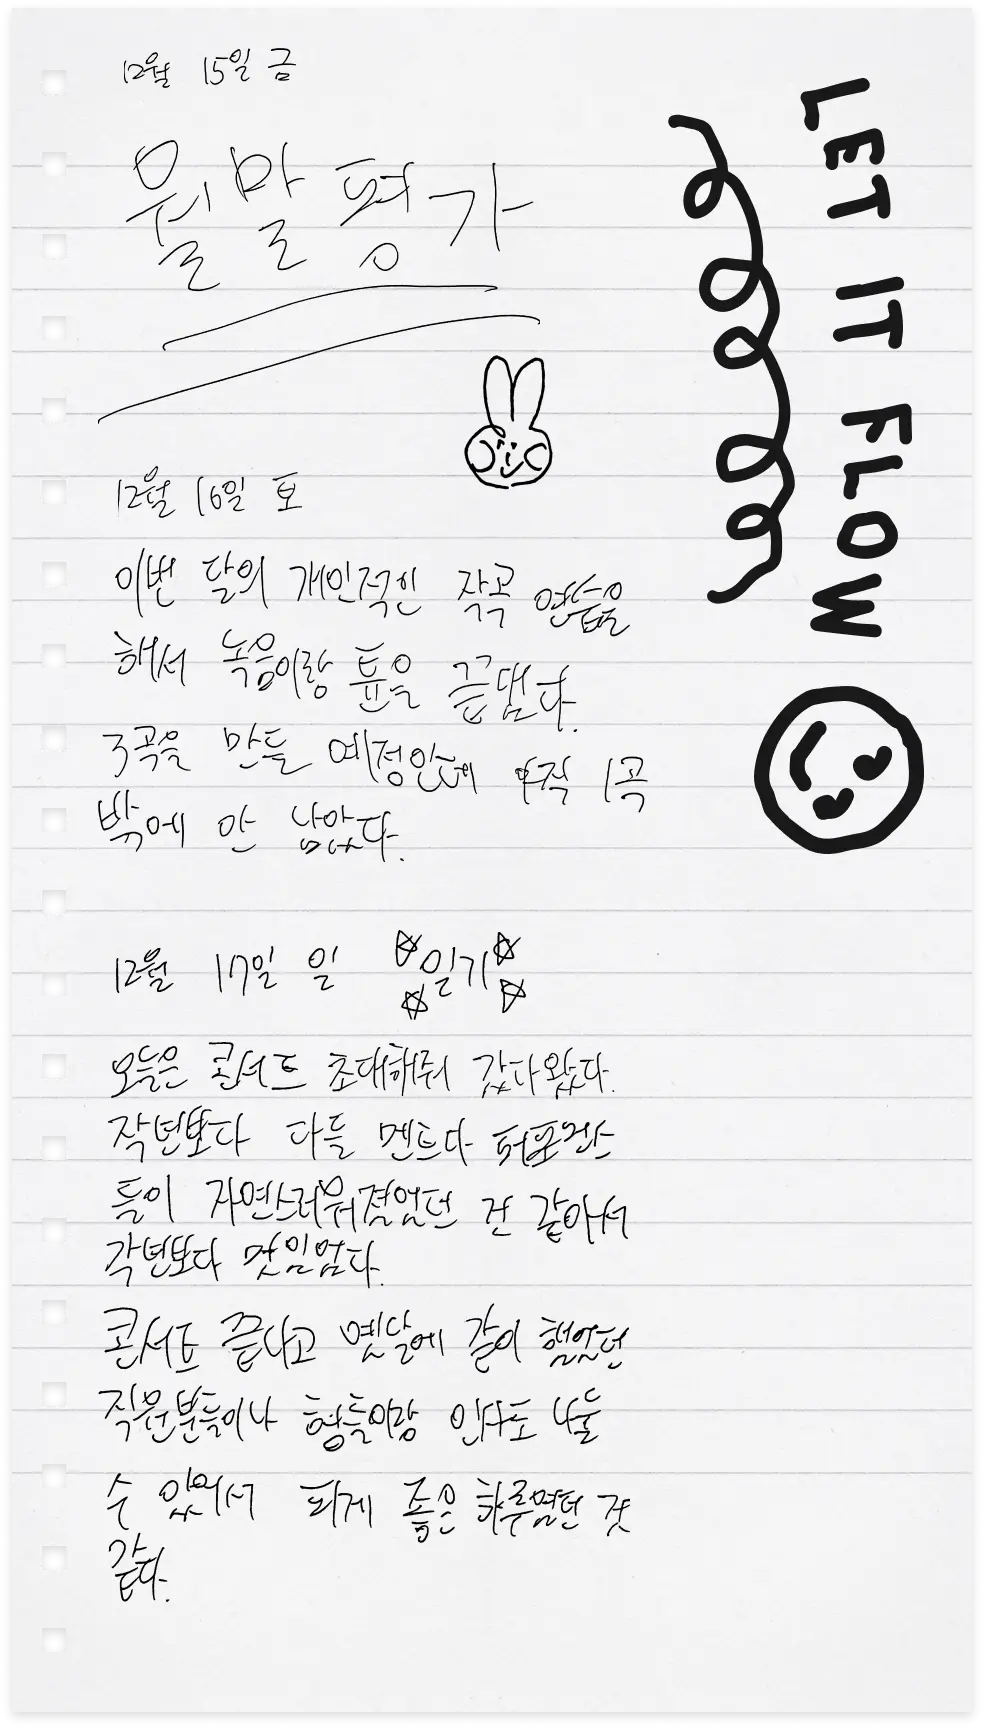 12월 15일 금
월말평가
LET IT FLOW
12월 16일 토
이번 달의 개인적인 작곡 연습을
해서 녹음이랑 튠을 끝냈다.
3곡을 만들 예정인데 아직 1곡
밖에 안 남았다.
12월 17일 일 일기
오늘은 콘서트 초대해줘 갔다왔다.
작년보다 다들 멘트다 퍼포먼스
들이 자연스러워졌었던 건 같아서
작년보다 멋있었다.
콘서트 끝나고 옛날에 같이 했었던
직원분들이나 형들이랑 인사도 나눌
수 있어서 되게 좋은 하루였던 것
같다.